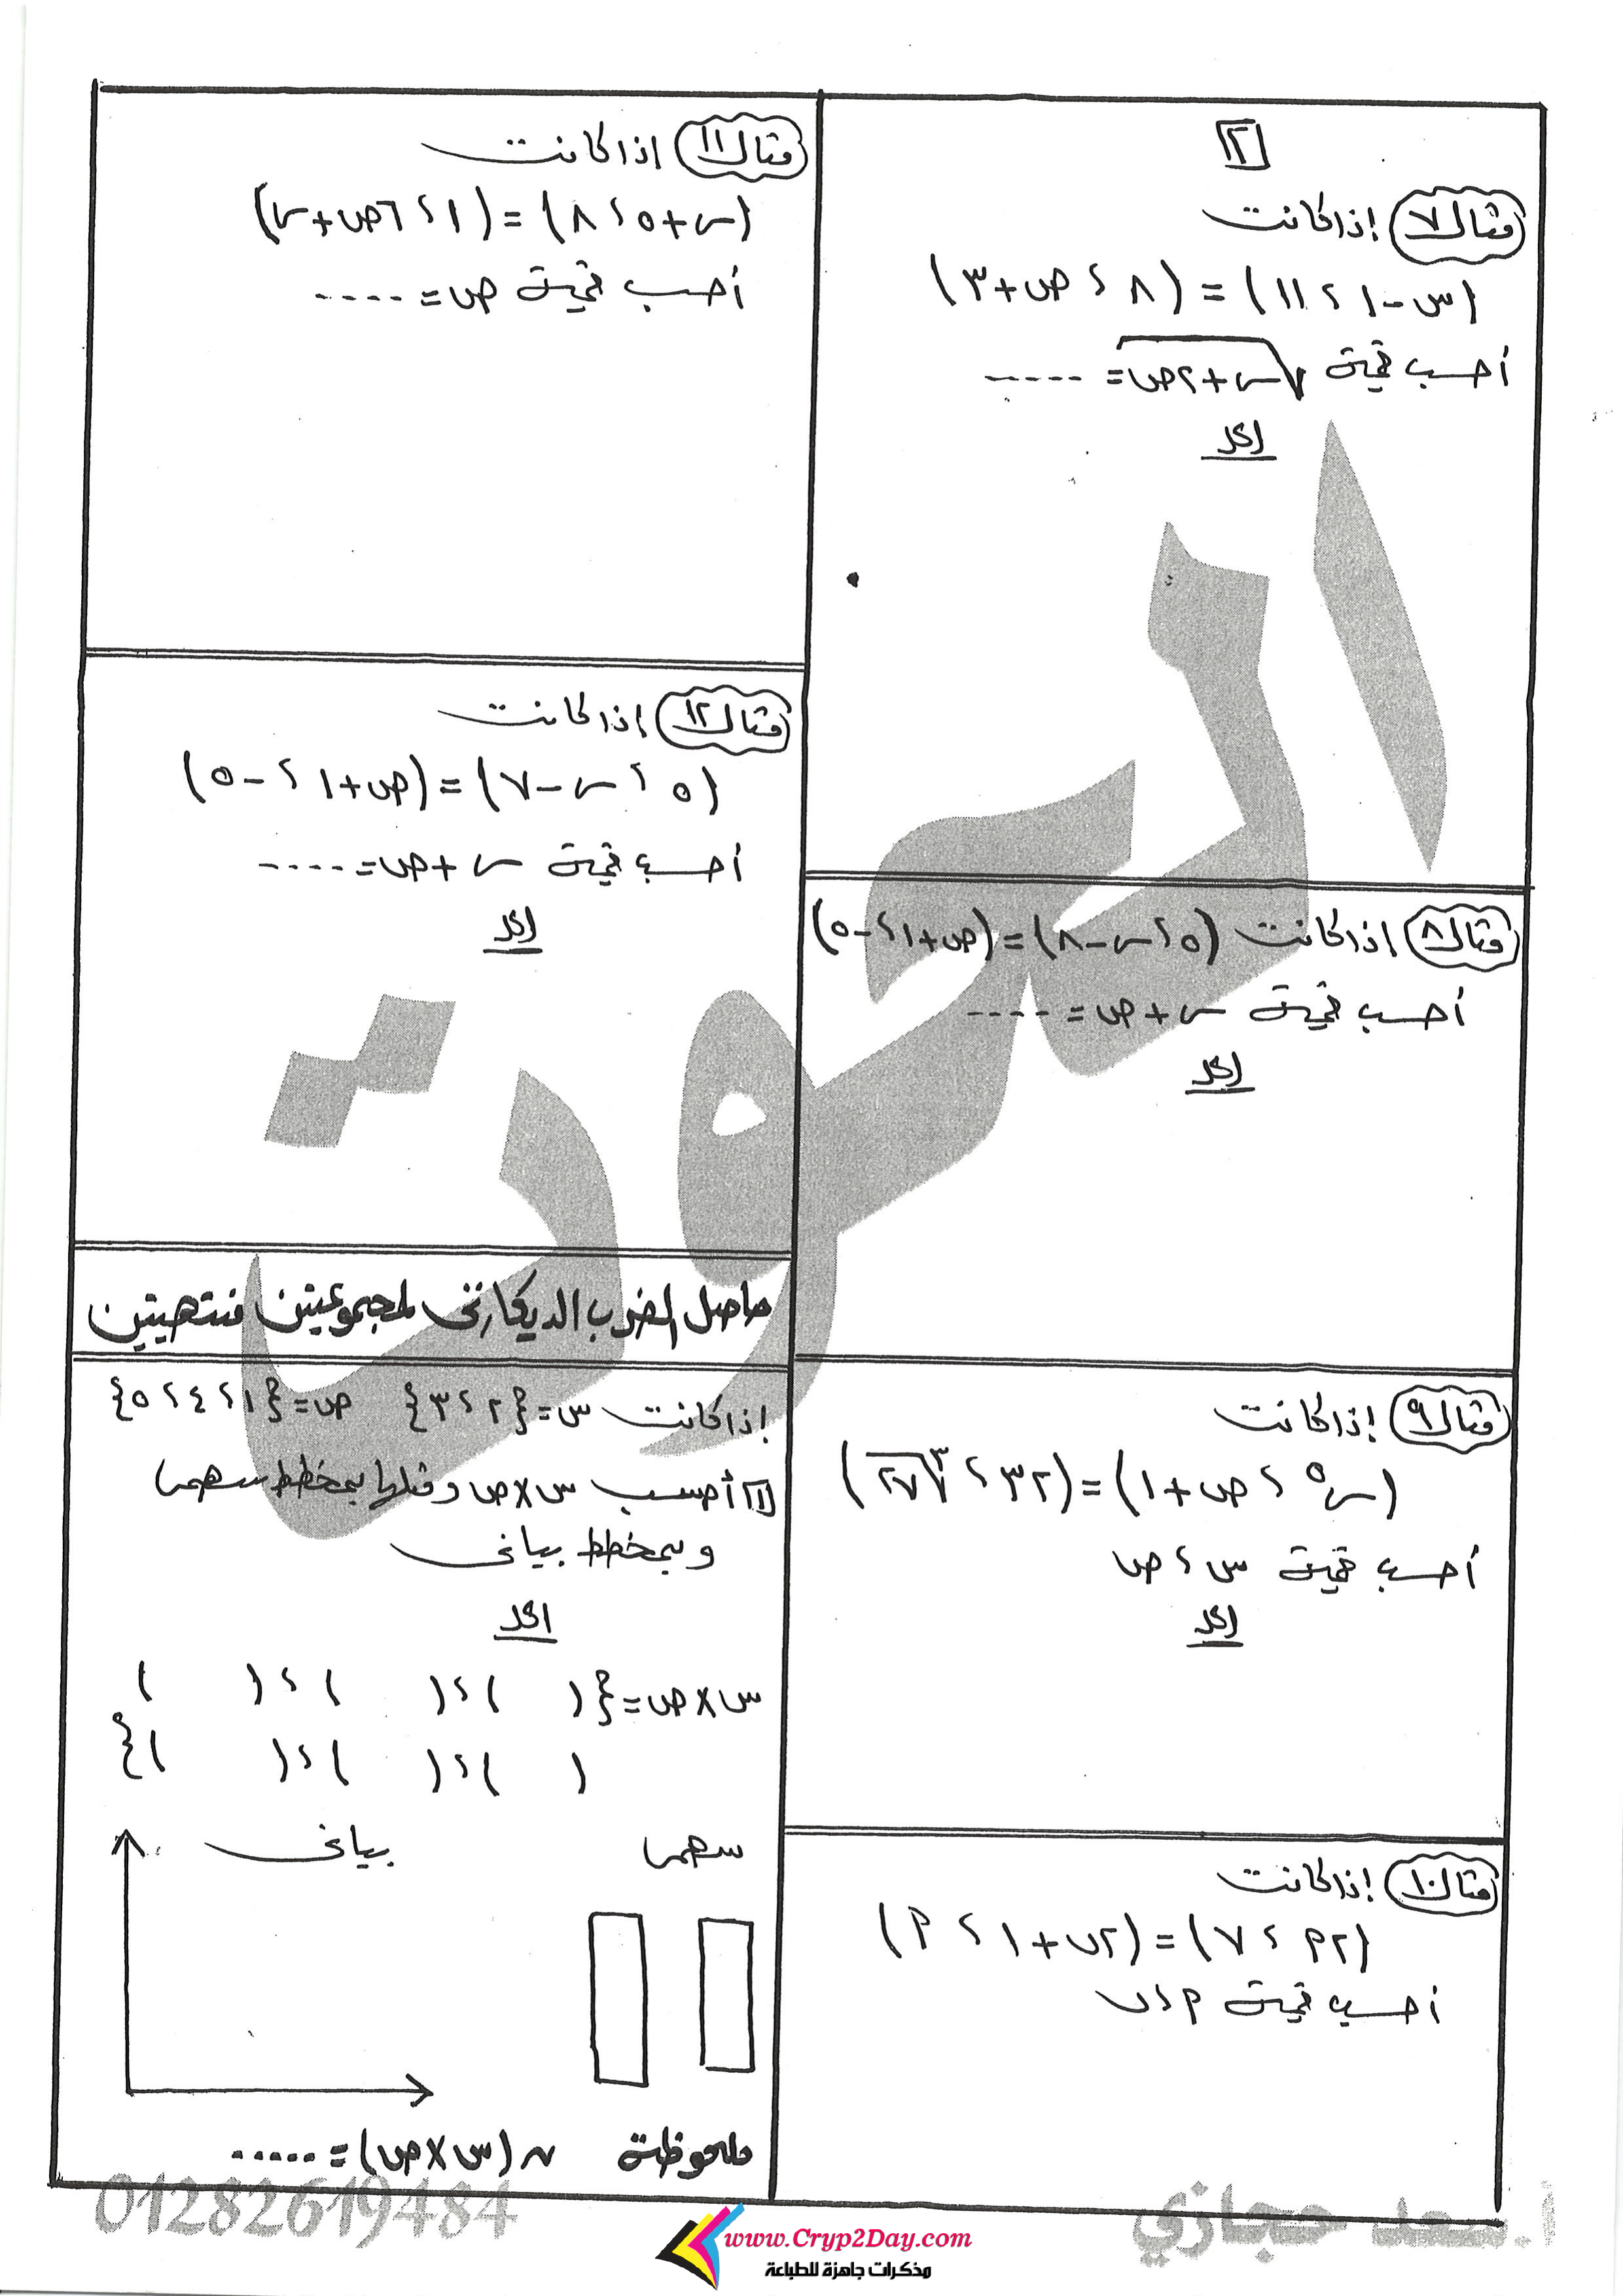 [٢]
مثال ٧ إذا كانت
(س - ١ ، ١١) = (٨ ، ص + ٣)
أحسب قيمة √(س + ٢ص) = -----
الحل
مثال ٨ اذا كانت (٥ ، س - ٨) = (ص + ١ ، - ٥)
أحسب قيمة س + ص = ----
الحل
مثال ٩ إذا كانت
(س⁵ ، ص + ١) = (٣٢ ، ∛٢٧)
أحسب قيمة س ، ص
الحل
مثال ١٠ إذا كانت
(٢ أ ، ٧) = (٢ ب + ١ ، أ)
أحسب قيمة أ ، ب
مثال ١١ اذا كانت
(س + ٥ ، ٨) = (١ ، ٦ص + س)
أحسب قيمة ص = ----
مثال ١٢ اذا كانت
(٥ ، س - ٧) = (ص + ١ ، - ٥)
أحسب قيمة س + ص = ----
الحل
حاصل الضرب الديكارتى لمجموعتين منتهيتين
إذا كانت س = {٢ ، ٣} ص = {١ ، ٤ ، ٥}
[١] أحسب س × ص ومثلها بمخطط سهمى
وبمخطط بيانى
الحل
س × ص = {( ) ، ( ) ، ( )
( ) ، ( ) ، ( )}
سهمى بيانى
ملحوظة ن (س × ص) = .....
أ. سعد حجازي 01282619484
www.Cryp2Day.com
مذكرات جاهزة للطباعة